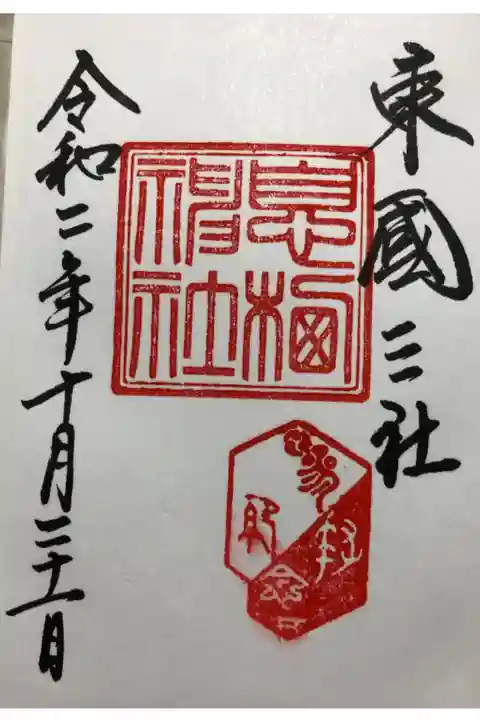 東國三社
息栖神社
令和二年十月二十一日